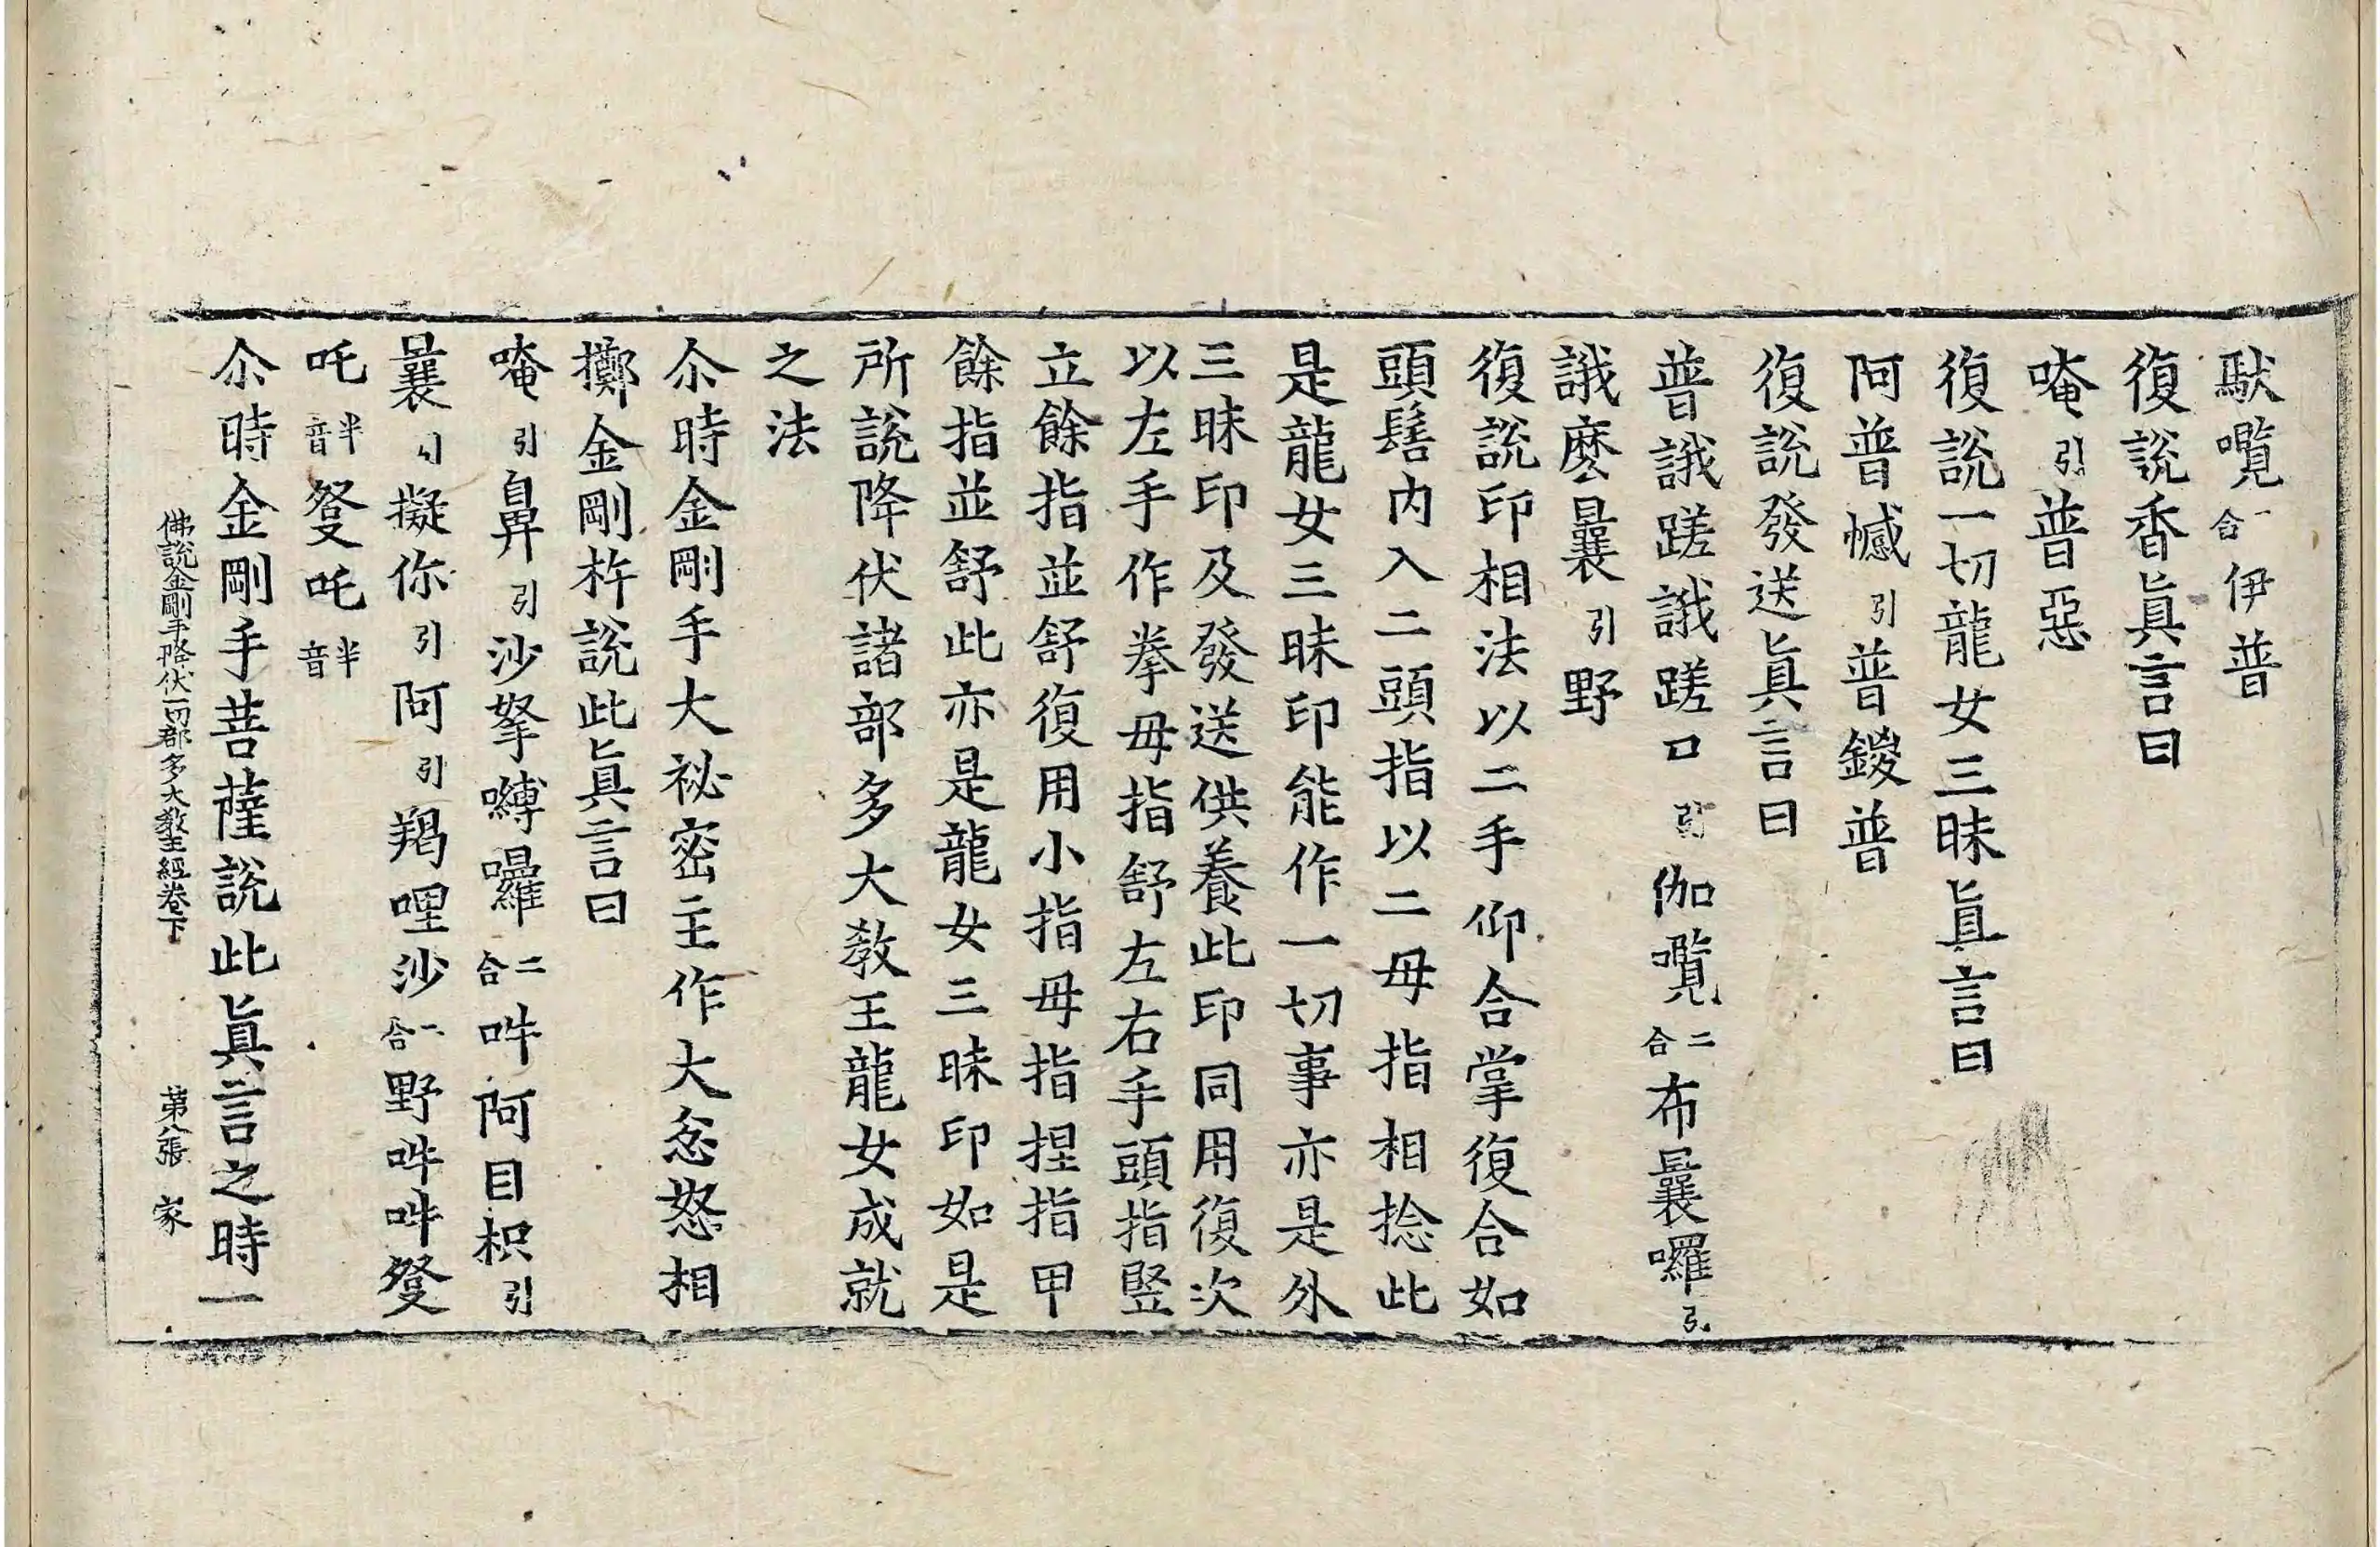 馱嚂二合伊普
復說香眞言曰
唵引普惡
復說一切龍女三昧眞言曰
阿普㦧引普鑁普
復說發送眞言曰
普誐蹉誐蹉口引伽嚂二合布曩囉引
誐麽曩引野
復說印相法以二手仰合掌復合如
頭髻內入二頭指以二母指相捻此
是龍女三昧印能作一切事亦是外
三昧印及發送供養此印同用復次
以左手作拳母指舒左右手頭指竪
立餘指並舒復用小指母指捏指甲
餘指並舒此亦是龍女三昧印如是
所說降伏諸部多大敎王龍女成就
之法
尒時金剛手大祕密主作大忿怒相
擲金剛杵說此眞言曰
唵引鼻引沙拏嚩囉二合吽阿目枳引
曩引擬你引阿引羯哩沙二合野吽吽發
吒半音發吒半音
尒時金剛手菩薩說此眞言之時一
佛說金剛手降伏一切部多大敎王經卷下 第八張 家